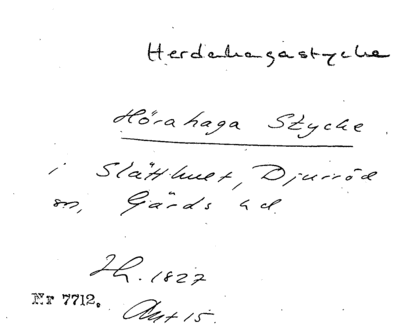 Herdahagastycke
Hörahaga Stycke
i Slätthult, Djurröd
sn, Gärds hd.
Lh. 1827
Nr 7712.
Akt 15.